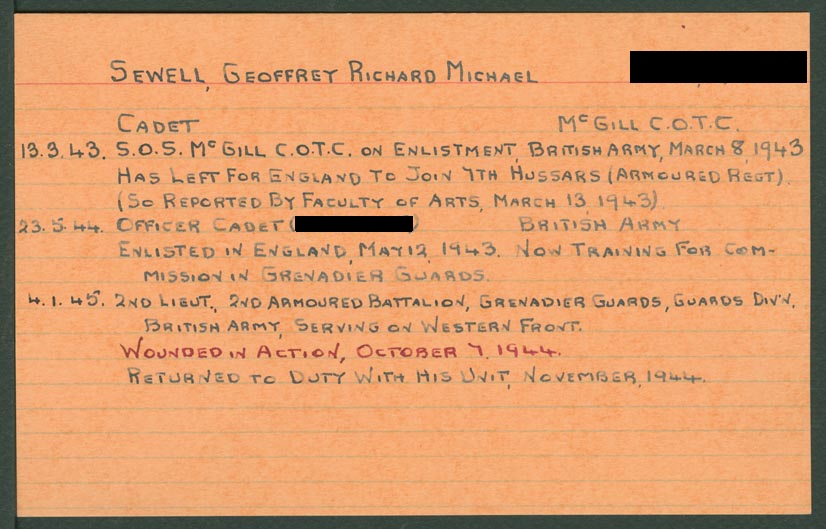 SEWELL, GEOFFREY RICHARD MICHAEL
CADET McGILL C.O.T.C.
13.3.43. S.O.S. McGILL C.O.T.C. ON ENLISTMENT, BRITISH ARMY, MARCH 8, 1943
HAS LEFT FOR ENGLAND TO JOIN 7TH HUSSARS (ARMOURED REGT).
(SO REPORTED BY FACULTY OF ARTS, MARCH 13, 1943).
23.5.44. OFFICER CADET ( ) BRITISH ARMY
ENLISTED IN ENGLAND, MAY 12, 1943. NOW TRAINING FOR COM-
MISSION IN GRENADIER GUARDS.
4.1.45. 2ND LIEUT., 2ND ARMOURED BATTALION, GRENADIER GUARDS, GUARDS DIV'N.
BRITISH ARMY, SERVING ON WESTERN FRONT.
WOUNDED IN ACTION, OCTOBER 7, 1944.
RETURNED TO DUTY WITH HIS UNIT, NOVEMBER, 1944.